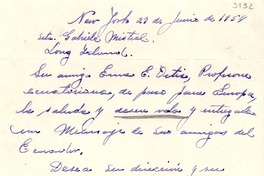 3132
New York 23 de Junio de 1954
Srta. Gabriela Mistral.
Long Island.
Su amiga Emma E. Ortiz, Profesora
ecuatoriana, de paso para Europa,
la saluda y desea verla y entregarle
un Mensaje de sus amigos del
Ecuador.
Desea su dirección y su